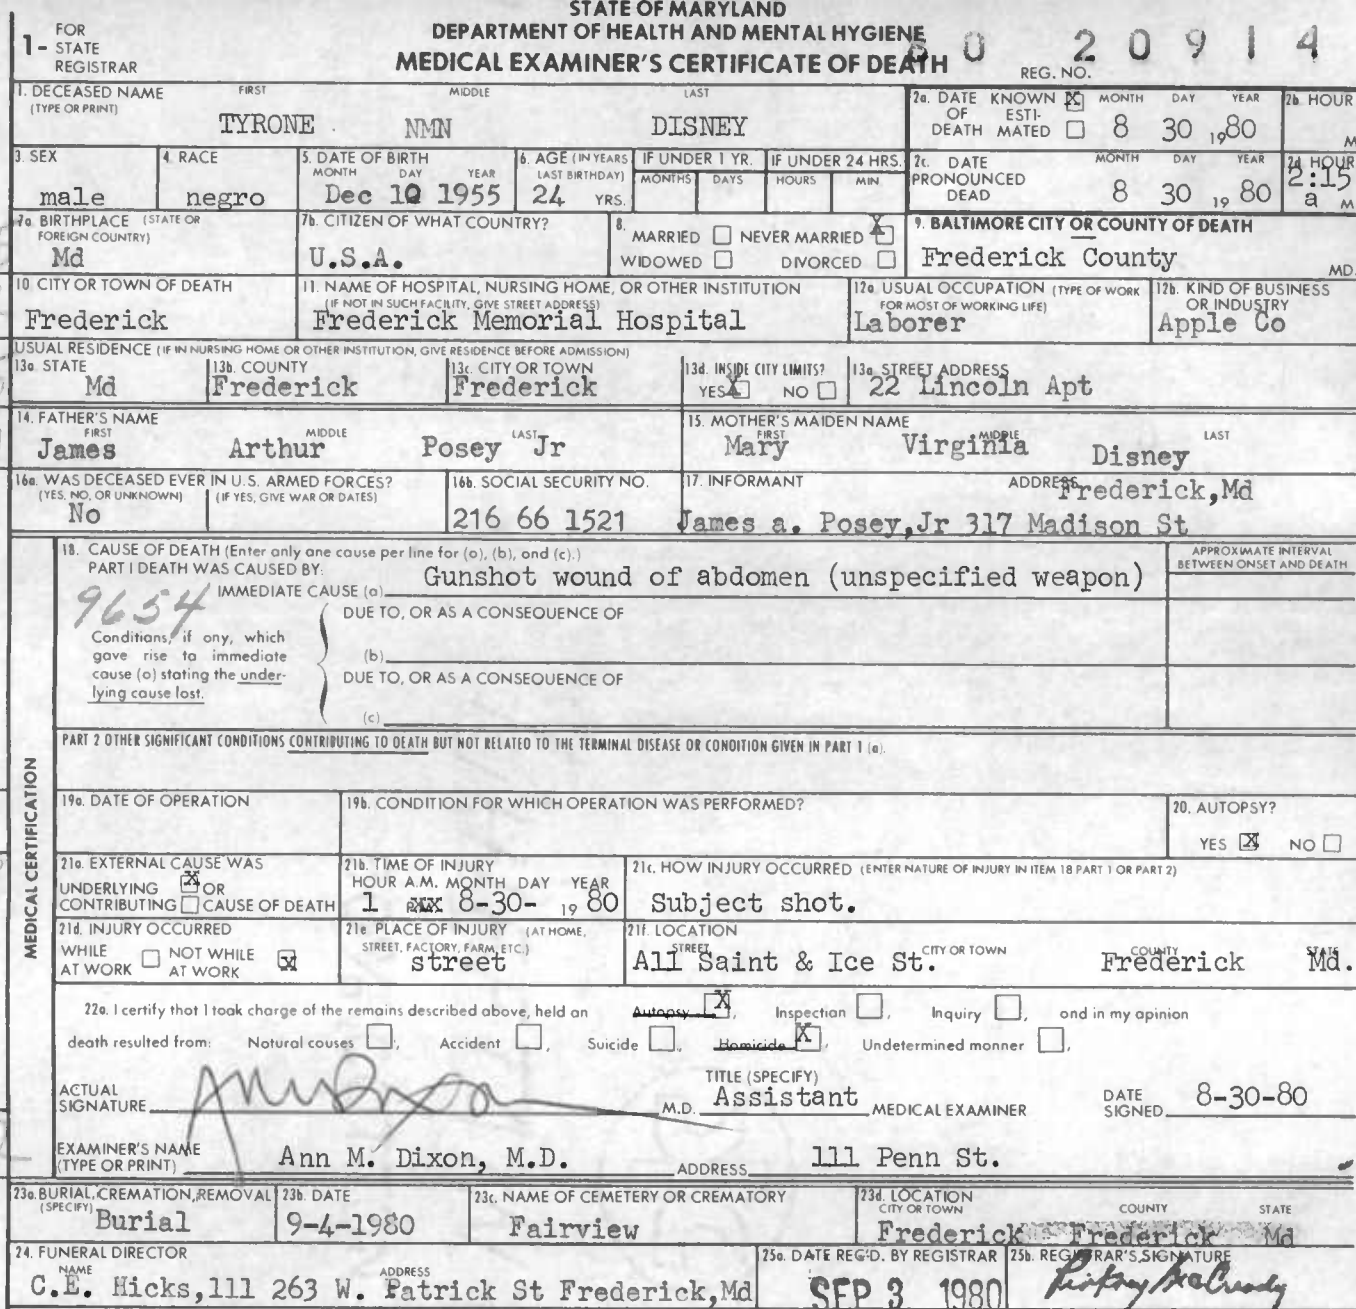 STATE OF MARYLAND
DEPARTMENT OF HEALTH AND MENTAL HYGIENE
MEDICAL EXAMINER'S CERTIFICATE OF DEATH
1- FOR STATE REGISTRAR
REG. NO. 80 20914
1. DECEASED NAME (TYPE OR PRINT) FIRST MIDDLE LAST
TYRONE NMN DISNEY
2a. DATE OF DEATH KNOWN X ESTIMATED MONTH DAY YEAR
8 30 1980
2b. HOUR M
3. SEX
male
4. RACE
negro
5. DATE OF BIRTH MONTH DAY YEAR
Dec 10 1955
6. AGE (IN YEARS LAST BIRTHDAY)
24 YRS.
IF UNDER 1 YR. MONTHS DAYS
IF UNDER 24 HRS. HOURS MIN
2c. DATE PRONOUNCED DEAD MONTH DAY YEAR
8 30 1980
2d. HOUR
2:15 a M
7a. BIRTHPLACE (STATE OR FOREIGN COUNTRY)
Md
7b. CITIZEN OF WHAT COUNTRY?
U.S.A.
8. MARRIED NEVER MARRIED X
WIDOWED DIVORCED
9. BALTIMORE CITY OR COUNTY OF DEATH
Frederick County MD.
10. CITY OR TOWN OF DEATH
Frederick
11. NAME OF HOSPITAL, NURSING HOME, OR OTHER INSTITUTION
(IF NOT IN SUCH FACILITY, GIVE STREET ADDRESS)
Frederick Memorial Hospital
12a. USUAL OCCUPATION (TYPE OF WORK FOR MOST OF WORKING LIFE)
Laborer
12b. KIND OF BUSINESS OR INDUSTRY
Apple Co
USUAL RESIDENCE (IF IN NURSING HOME OR OTHER INSTITUTION, GIVE RESIDENCE BEFORE ADMISSION)
13a. STATE
Md
13b. COUNTY
Frederick
13c. CITY OR TOWN
Frederick
13d. INSIDE CITY LIMITS?
YES X NO
13e. STREET ADDRESS
22 Lincoln Apt
14. FATHER'S NAME FIRST MIDDLE LAST
James Arthur Posey Jr
15. MOTHER'S MAIDEN NAME FIRST MIDDLE LAST
Mary Virginia Disney
16a. WAS DECEASED EVER IN U.S. ARMED FORCES?
(YES, NO, OR UNKNOWN) (IF YES, GIVE WAR OR DATES)
No
16b. SOCIAL SECURITY NO.
216 66 1521
17. INFORMANT ADDRESS
Frederick,Md
James a. Posey,Jr 317 Madison St
MEDICAL CERTIFICATION
18. CAUSE OF DEATH (Enter only one cause per line for (a), (b), and (c).)
PART I DEATH WAS CAUSED BY:
IMMEDIATE CAUSE (a) Gunshot wound of abdomen (unspecified weapon)
APPROXIMATE INTERVAL BETWEEN ONSET AND DEATH
9654
DUE TO, OR AS A CONSEQUENCE OF
Conditions, if any, which
gave rise to immediate
cause (a) stating the under-
lying cause last.
(b)
DUE TO, OR AS A CONSEQUENCE OF
(c)
PART 2 OTHER SIGNIFICANT CONDITIONS CONTRIBUTING TO DEATH BUT NOT RELATED TO THE TERMINAL DISEASE OR CONDITION GIVEN IN PART 1 (a).
19a. DATE OF OPERATION
19b. CONDITION FOR WHICH OPERATION WAS PERFORMED?
20. AUTOPSY?
YES X NO
21a. EXTERNAL CAUSE WAS
UNDERLYING X OR
CONTRIBUTING CAUSE OF DEATH
21b. TIME OF INJURY
HOUR A.M. MONTH DAY YEAR
1 8-30- 1980
21c. HOW INJURY OCCURRED (ENTER NATURE OF INJURY IN ITEM 18 PART 1 OR PART 2)
Subject shot.
21d. INJURY OCCURRED
WHILE AT WORK NOT WHILE AT WORK X
21e. PLACE OF INJURY (AT HOME, STREET, FACTORY, FARM, ETC.)
street
21f. LOCATION STREET CITY OR TOWN COUNTY STATE
All Saint & Ice St. Frederick Md.
22a. I certify that I took charge of the remains described above, held an Autopsy X, Inspection, Inquiry, and in my opinion
death resulted from: Natural causes, Accident, Suicide, Homicide X, Undetermined manner,
ACTUAL SIGNATURE M.D.
TITLE (SPECIFY)
Assistant MEDICAL EXAMINER
DATE SIGNED 8-30-80
EXAMINER'S NAME (TYPE OR PRINT) Ann M. Dixon, M.D. ADDRESS 111 Penn St.
23a. BURIAL, CREMATION, REMOVAL (SPECIFY)
Burial
23b. DATE
9-4-1980
23c. NAME OF CEMETERY OR CREMATORY
Fairview
23d. LOCATION CITY OR TOWN COUNTY STATE
Frederick Frederick Md
24. FUNERAL DIRECTOR NAME ADDRESS
C.E. Hicks,111 263 W. Patrick St Frederick,Md
25a. DATE REC'D. BY REGISTRAR
SEP 3 1980
25b. REGISTRAR'S SIGNATURE